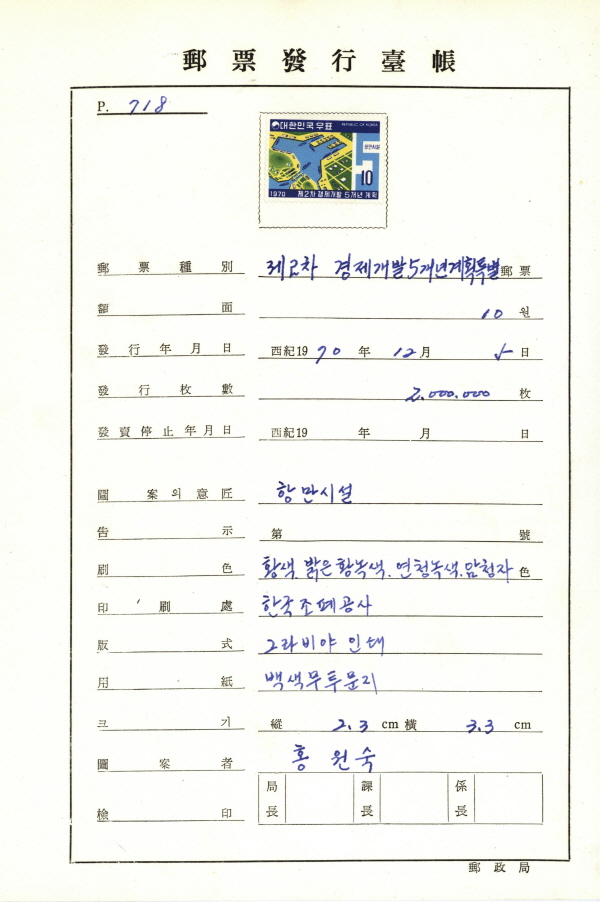 郵票發行臺帳
P. 718
대한민국우표 REPUBLIC OF KOREA
항만시설
10
1970 제2차 경제개발 5개년 계획
郵票種別 제2차 경제개발5개년계획특별郵票
額面 10원
發行年月日 西紀1970年12月5日
發行枚數 2.000.000枚
發賣停止年月日 西紀19 年 月 日
圖案의意匠 항만시설
告示 第 號
刷色 황색. 밝은황녹색. 연청녹색. 암청자色
印刷處 한국조폐공사
版式 그라비야 인쇄
用紙 백색무투문지
크기 縱 2.3cm 橫 3.3cm
圖案者 홍원숙
檢印 局長 課長 係長
郵政局